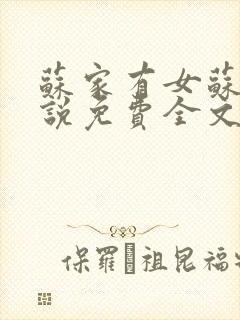 蘇家有女蘇
說免費全文
保羅·祖昆福